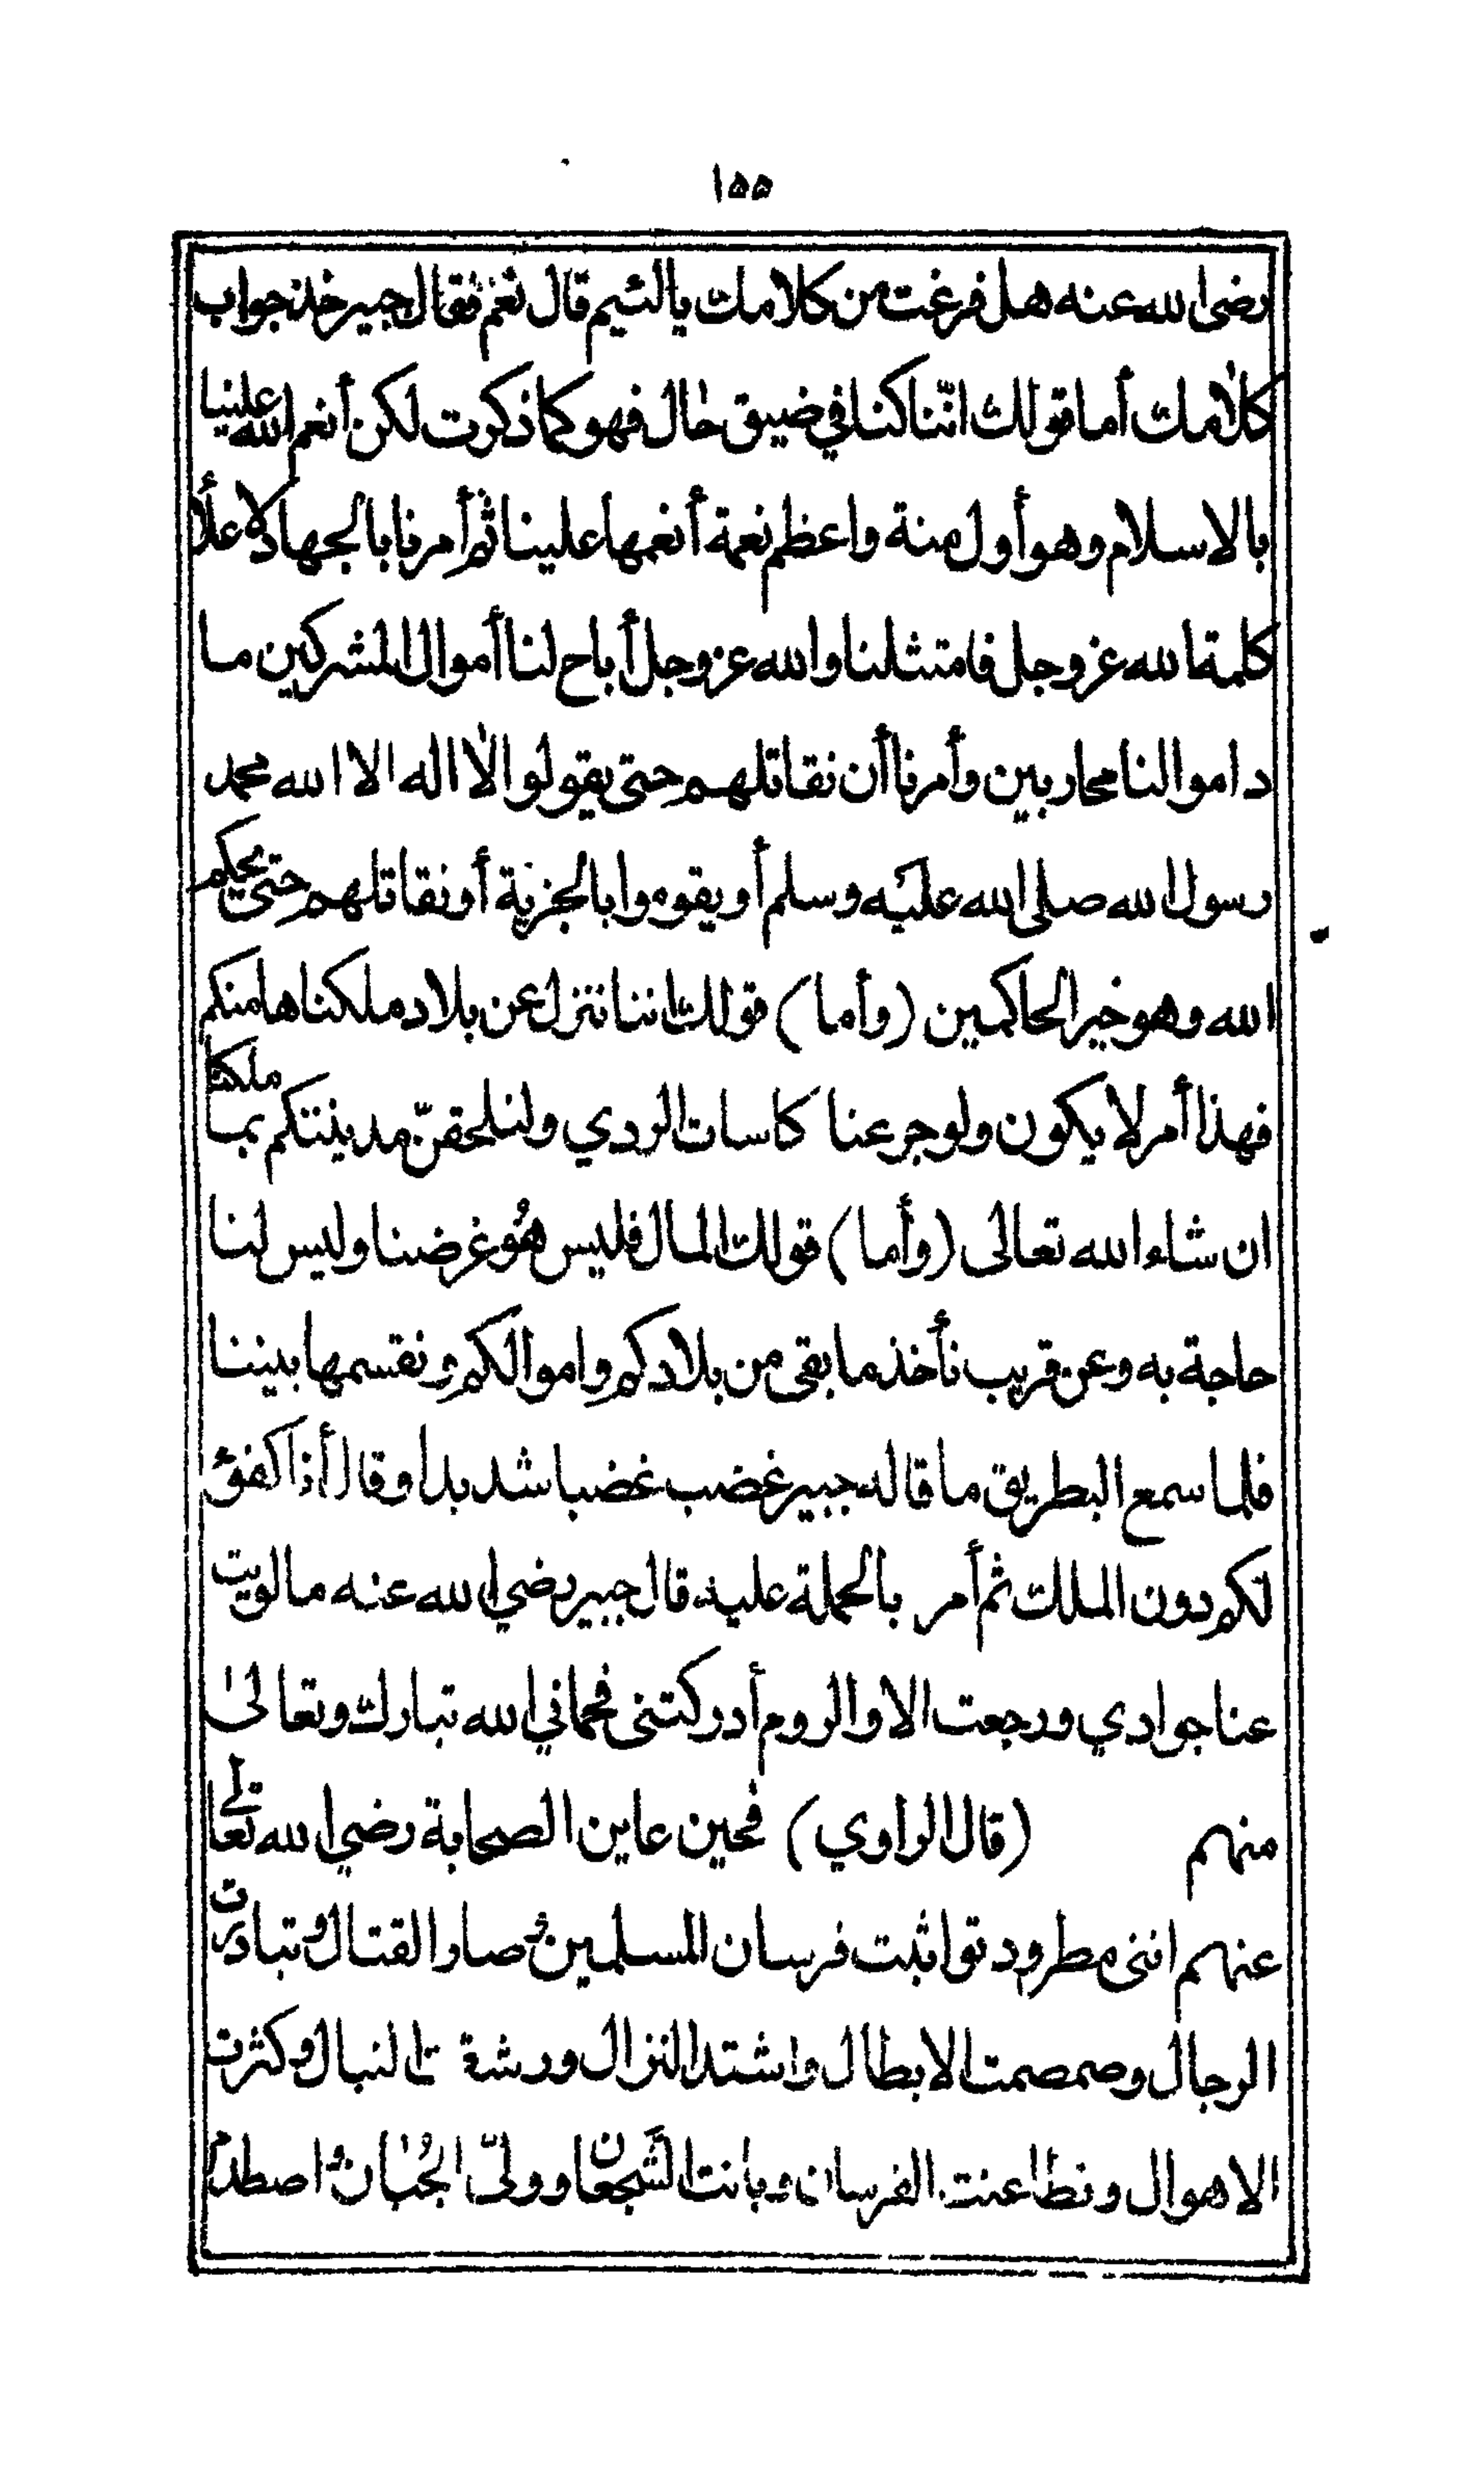 ١٥٥
رضي الله عنه هل فرغت من كلامك يا لئيم قال نعم فقال جبير خذ جواب
كلامك أما قولك انّنا كنا في ضيق حال فهو كما ذكرت لكن أنعم الله علينا
بالاسلام وهو أول منة واعظم نعمة أنعمها علينا ثم أمرنا بالجهاد لاعلا
كلمة الله عز وجل فامتثلنا والله عز وجل أباح لنا أموال المشركين ما
داموا لنا محاربين وأمرنا أن نقاتلهم حتى يقولوا لا اله الا الله محمد
رسول الله صلى الله عليه وسلم أو يقوموا بالجزية أو نقاتلهم حتى يحكم
الله وهو خير الحاكمين (وأما) قولك اننا ننزل عن بلاد ملكناها منكم
فهذا أمر لا يكون ولو جرعنا كاسات الردي ولنلحقنّ مدينتكم بما ملكنا
ان شاء الله تعالى (وأما) قولك المال فليس هُو غرضنا وليس لنا
حاجة به وعن قريب نأخذ ما بقى من بلادكم واموالكم ونقسمها بيننا
فلما سمع البطريق ما قاله جبير غضب غضبا شديدا وقال أنا كفؤ
لكم دون الملك ثم أمر بالحملة عليه قال جبير رضي الله عنه ما لويت
عنا جوادي ورجعت الا والروم أدركتنى فحماني الله تبارك وتعالىٰ
منهم (قال الراوي) فحين عاين الصحابة رضي الله تعالى
عنهم اننى مطرود تواثبت فرسان المسلمين وصار القتال وتبادرت
الرجال وصمصمت الابطال واشتد النزال ورشقت النبال وكثرت
الاهوال وتطاعنت الفرسان وبانت الشَّجعان وولّى الجُبان واصطدم